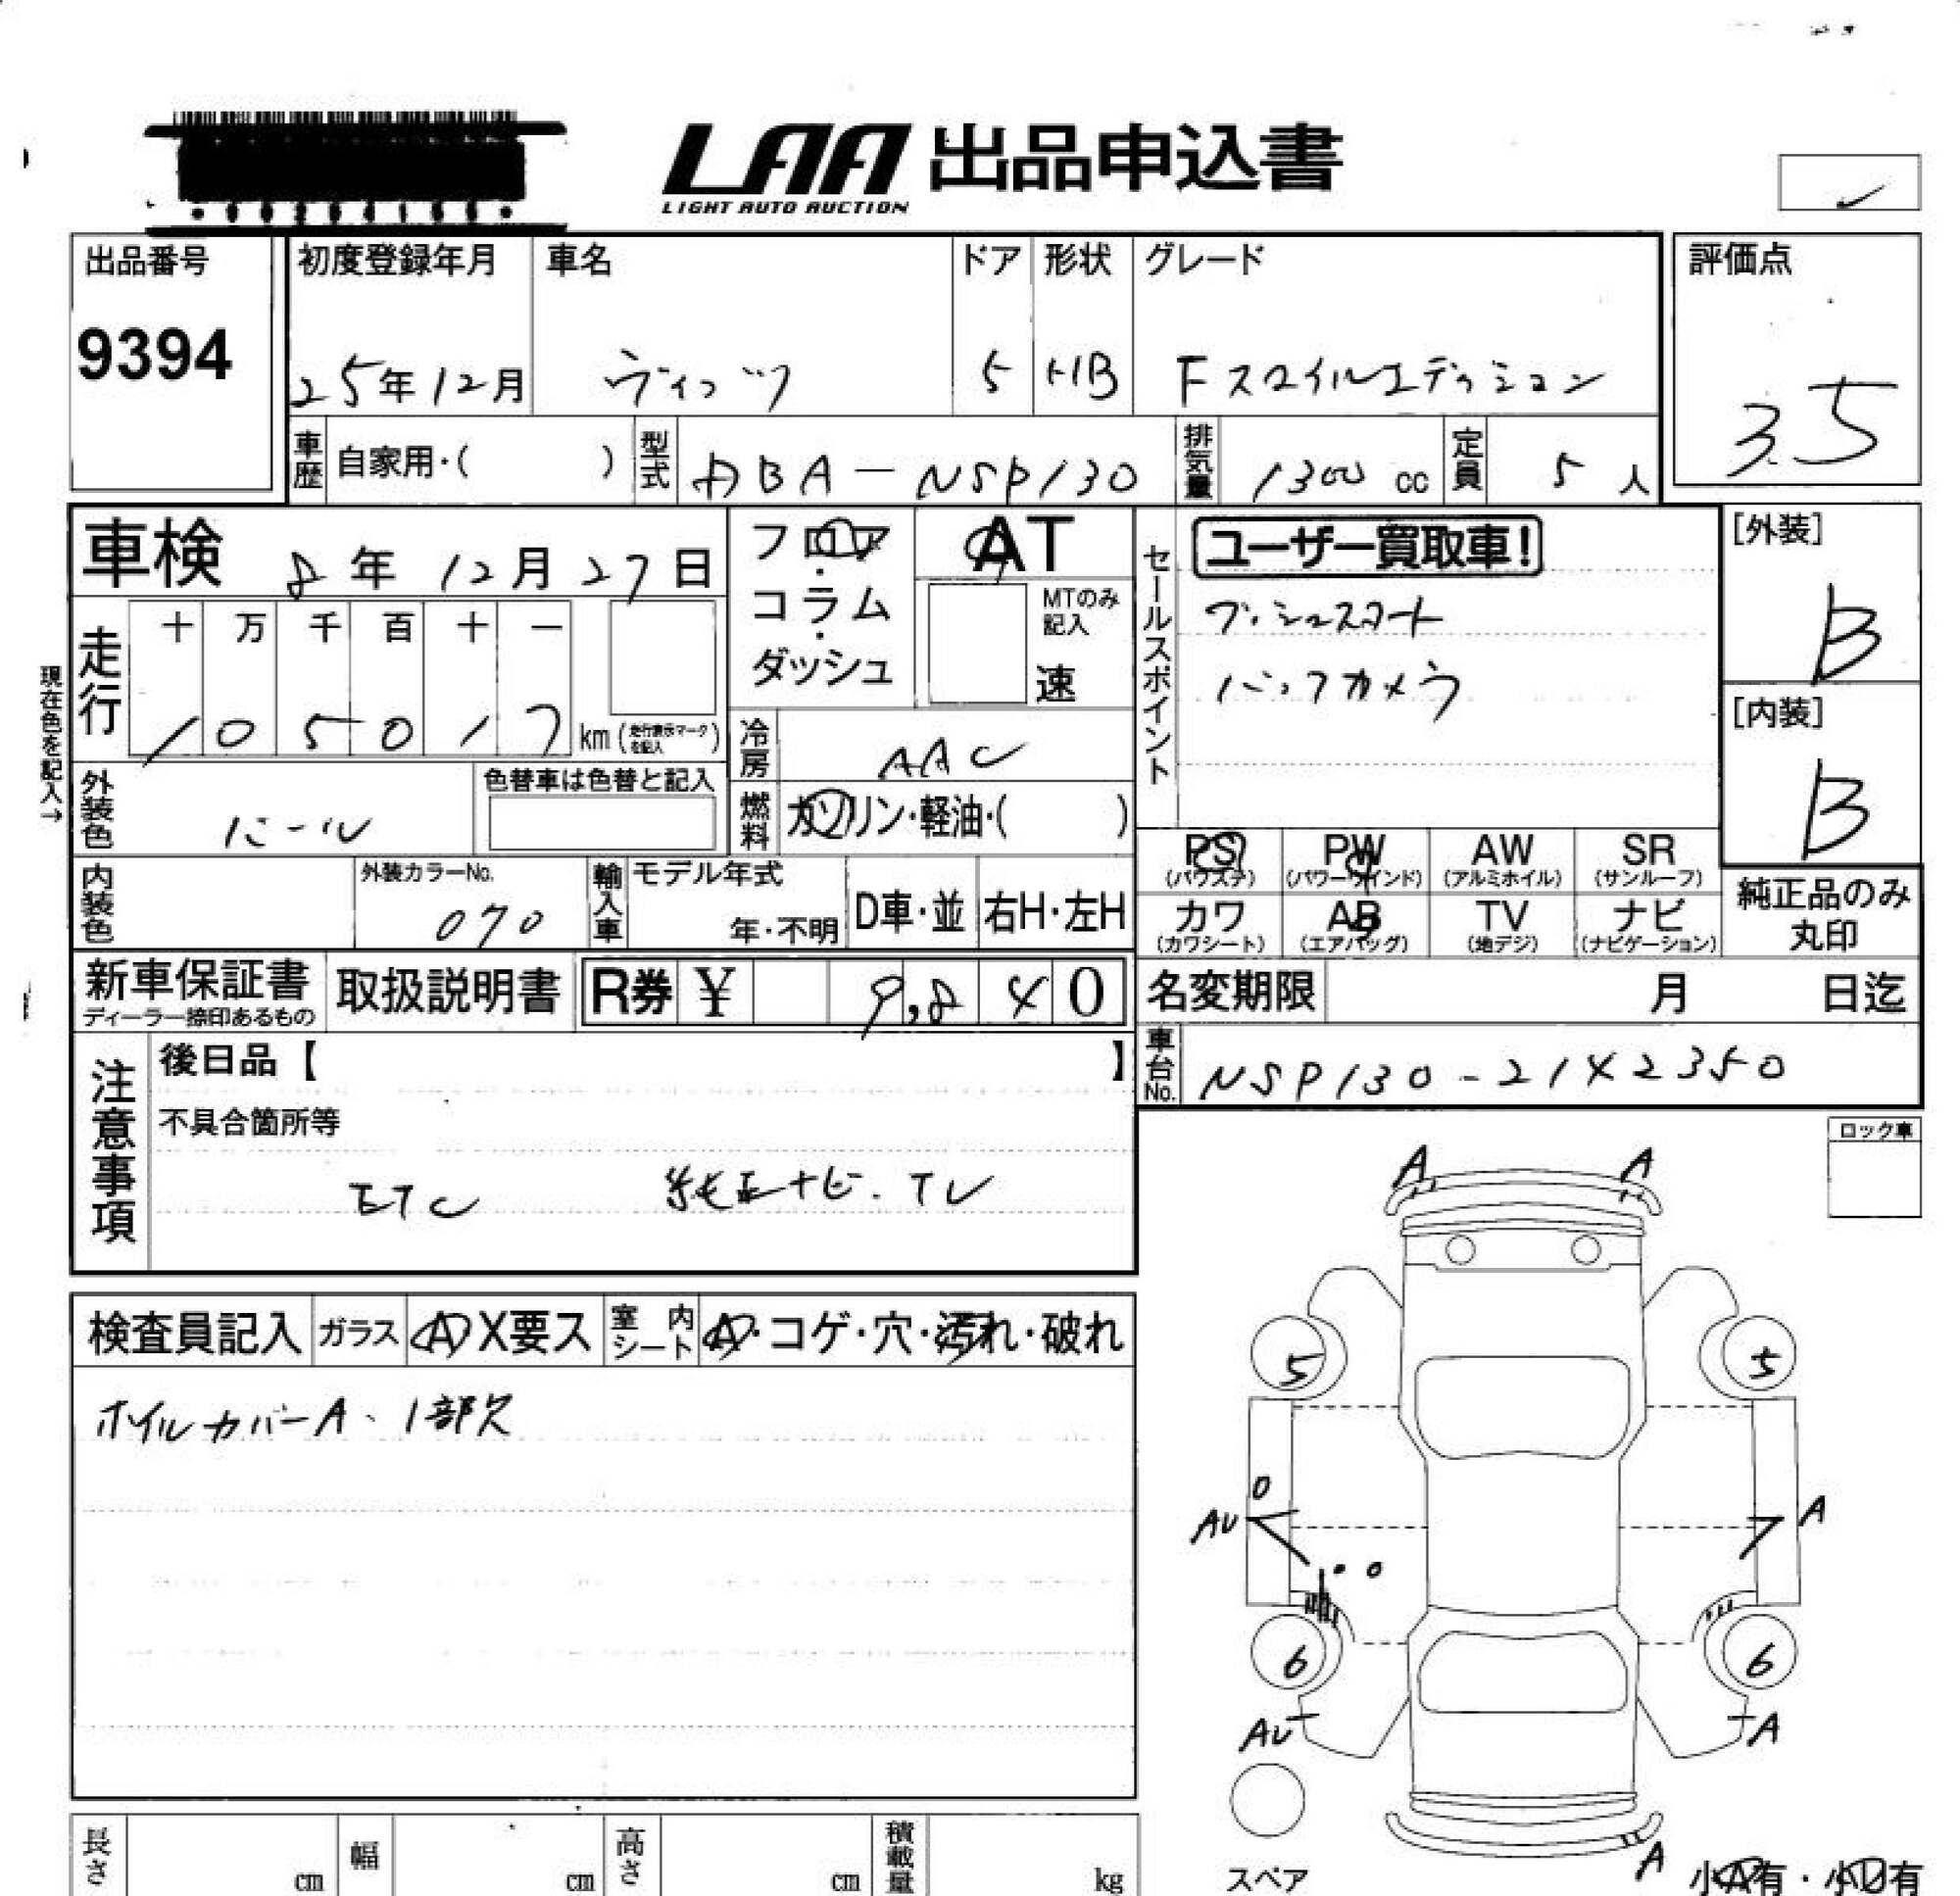 LAA 出品申込書
LIGHT AUTO AUCTION
出品番号
9394
初度登録年月
25年12月
車名
ヴィッツ
ドア
5
形状
HB
グレード
Fスマイルエディション
評価点
3.5
車歴 自家用・( )
型式 DBA-NSP130
排気量 1300 cc
定員 5人
車検 8年12月27日
フロア・コラム・ダッシュ
AT
MTのみ記入
速
セールスポイント
ユーザー買取車!
プッシュスタート
バックカメラ
[外装]
B
[内装]
B
走行
十 万 千 百 十 一
1 0 5 0 1 7 km (走行表示マークを記入)
現在色を記入→
冷房 AAC
外装色 パール
色替車は色替と記入
燃料 ガソリン・軽油・( )
内装色
外装カラーNo.
070
輸入車
モデル年式
年・不明
D車・並
右H・左H
PS (パワステ)
PW (パワーウインド)
AW (アルミホイル)
SR (サンルーフ)
カワ (カワシート)
AB (エアバッグ)
TV (地デジ)
ナビ (ナビゲーション)
純正品のみ丸印
新車保証書
ディーラー捺印あるもの
取扱説明書
R券 ¥ 9,840
名変期限 月 日迄
車台No. NSP130-2142350
注意事項
後日品【 】
不具合箇所等
ETC 純正ナビ.TV
ロック車
検査員記入
ガラス A X要ス
室内シート A・コゲ・穴・汚れ・破れ
ホイルカバーA、1部欠
A A
5 5
AU A
6 6
AU A
スペア
A
小A有・小U有
長さ cm
幅 cm
高さ cm
積載量 kg